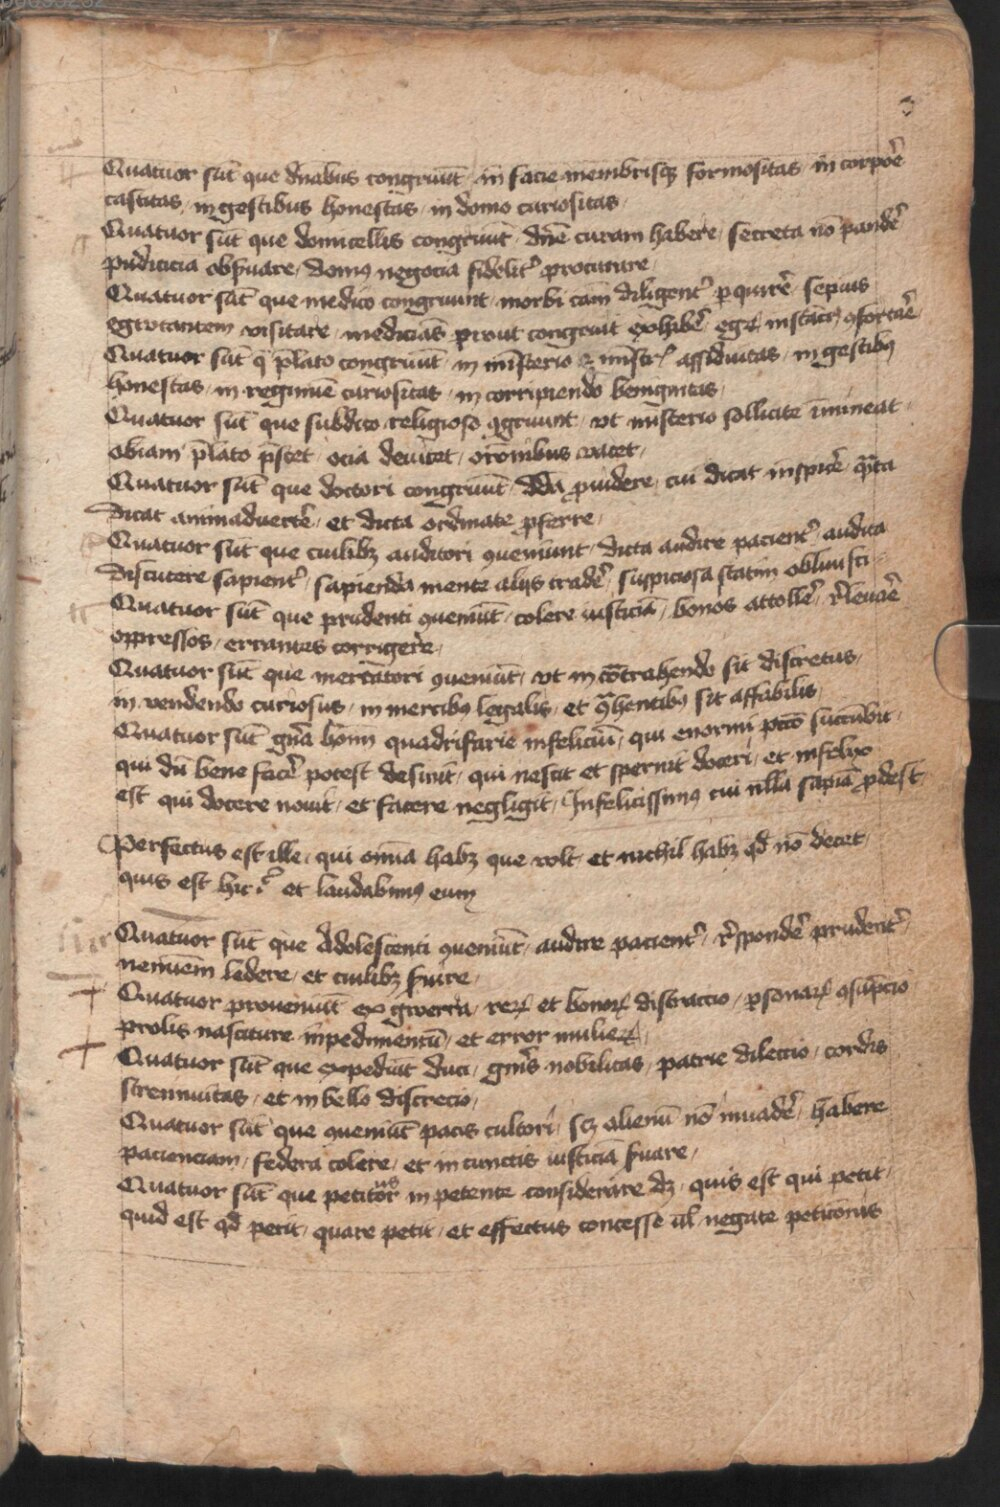 3
Quatuor sūt que dnābus congruūt in facie membrisqꝫ formositas in corpoē
castitas in gestibus honestas in domo curiositas
Quatuor sūt que domicellis congruūt dnē curam habere secreta nō pandē
pudicicia obẜuare domꝰ negocia fidelitˀ procurare
Quatuor sūt que medico congruunt morbi cām diligentˀ ꝑquirē sepius
egrotantem visitare medicīas prout congruit exhibē
Quatuor sūt q̄ p̄lato congruūt in mīsterio assiduitas in gestibꝰ
honestas in regimīe curiositas in corripiendo benignitas
Quatuor sūt que subdito religioso ꝯgruunt vt mīsterio sollicite īmineat
obiam p̄lato p̄stet ocia deuitet orōnibus vacet
Quatuor sūt que doctori congruūt ꝓuidere cui dicat inspicē
dicat animaduertē et dicta ordinate ꝓferre
Quatuor sūt que cuilibꝫ auditori ꝯueniunt dicta audire pacientˀ audita
discutere sapientˀ sapienda mente alijs tradē suspiciosa statim obliuisci
Quatuor sūt que prudenti ꝯueniūt colere iusticiā bonos attollē rˀleuaē
oppressos errantes corrigere
Quatuor sūt que mercatori ꝯueniūt vt in cōtrahendo sit discretus
in vendendo curiosus in mercibꝰ legalis et sit affabilis
Quatuor sūt gn̄a hoīm quadrifarie infeliciū qui enormi pccō succūbit
qui dū bene facē potest desinit qui nescit et spernit doceri et infelix
est qui docere nouit et facere negligit Infelicissimꝰ cui nlla sapīa ꝓdest
Perfectus est ille qui omīa habꝫ que volt et nichil habꝫ qd̄ nō decet
quis est hic et laudabimꝰ eum
Quatuor sūt que Adolescenti ꝯueniūt audire pacientˀ rˀspondē prudentˀ
neminem ledere et cuilibꝫ ẜuire
Quatuor proueniūt ex gwerra reꝝ et bonoꝝ distractio ꝑsonaꝝ ꝯsūpcio
prolis nasciture impedimentū et error mulieꝝ
Quatuor sūt que expediūt duci gnīs nobilitas patrie dilectio cordis
strennuitas et in bello discrecio
Quatuor sūt que ꝯueniūt pacis cultori scꝫ alienū nō inuadē habere
pacienciam federa colere et in cunctis iusticiā ẜuare
Quatuor sūt que petitorꝰ in petente considerare dꝫ quis est qui petit
quid est qd̄ petit quare petit et effectus concesse ul̄ negate peticōnis